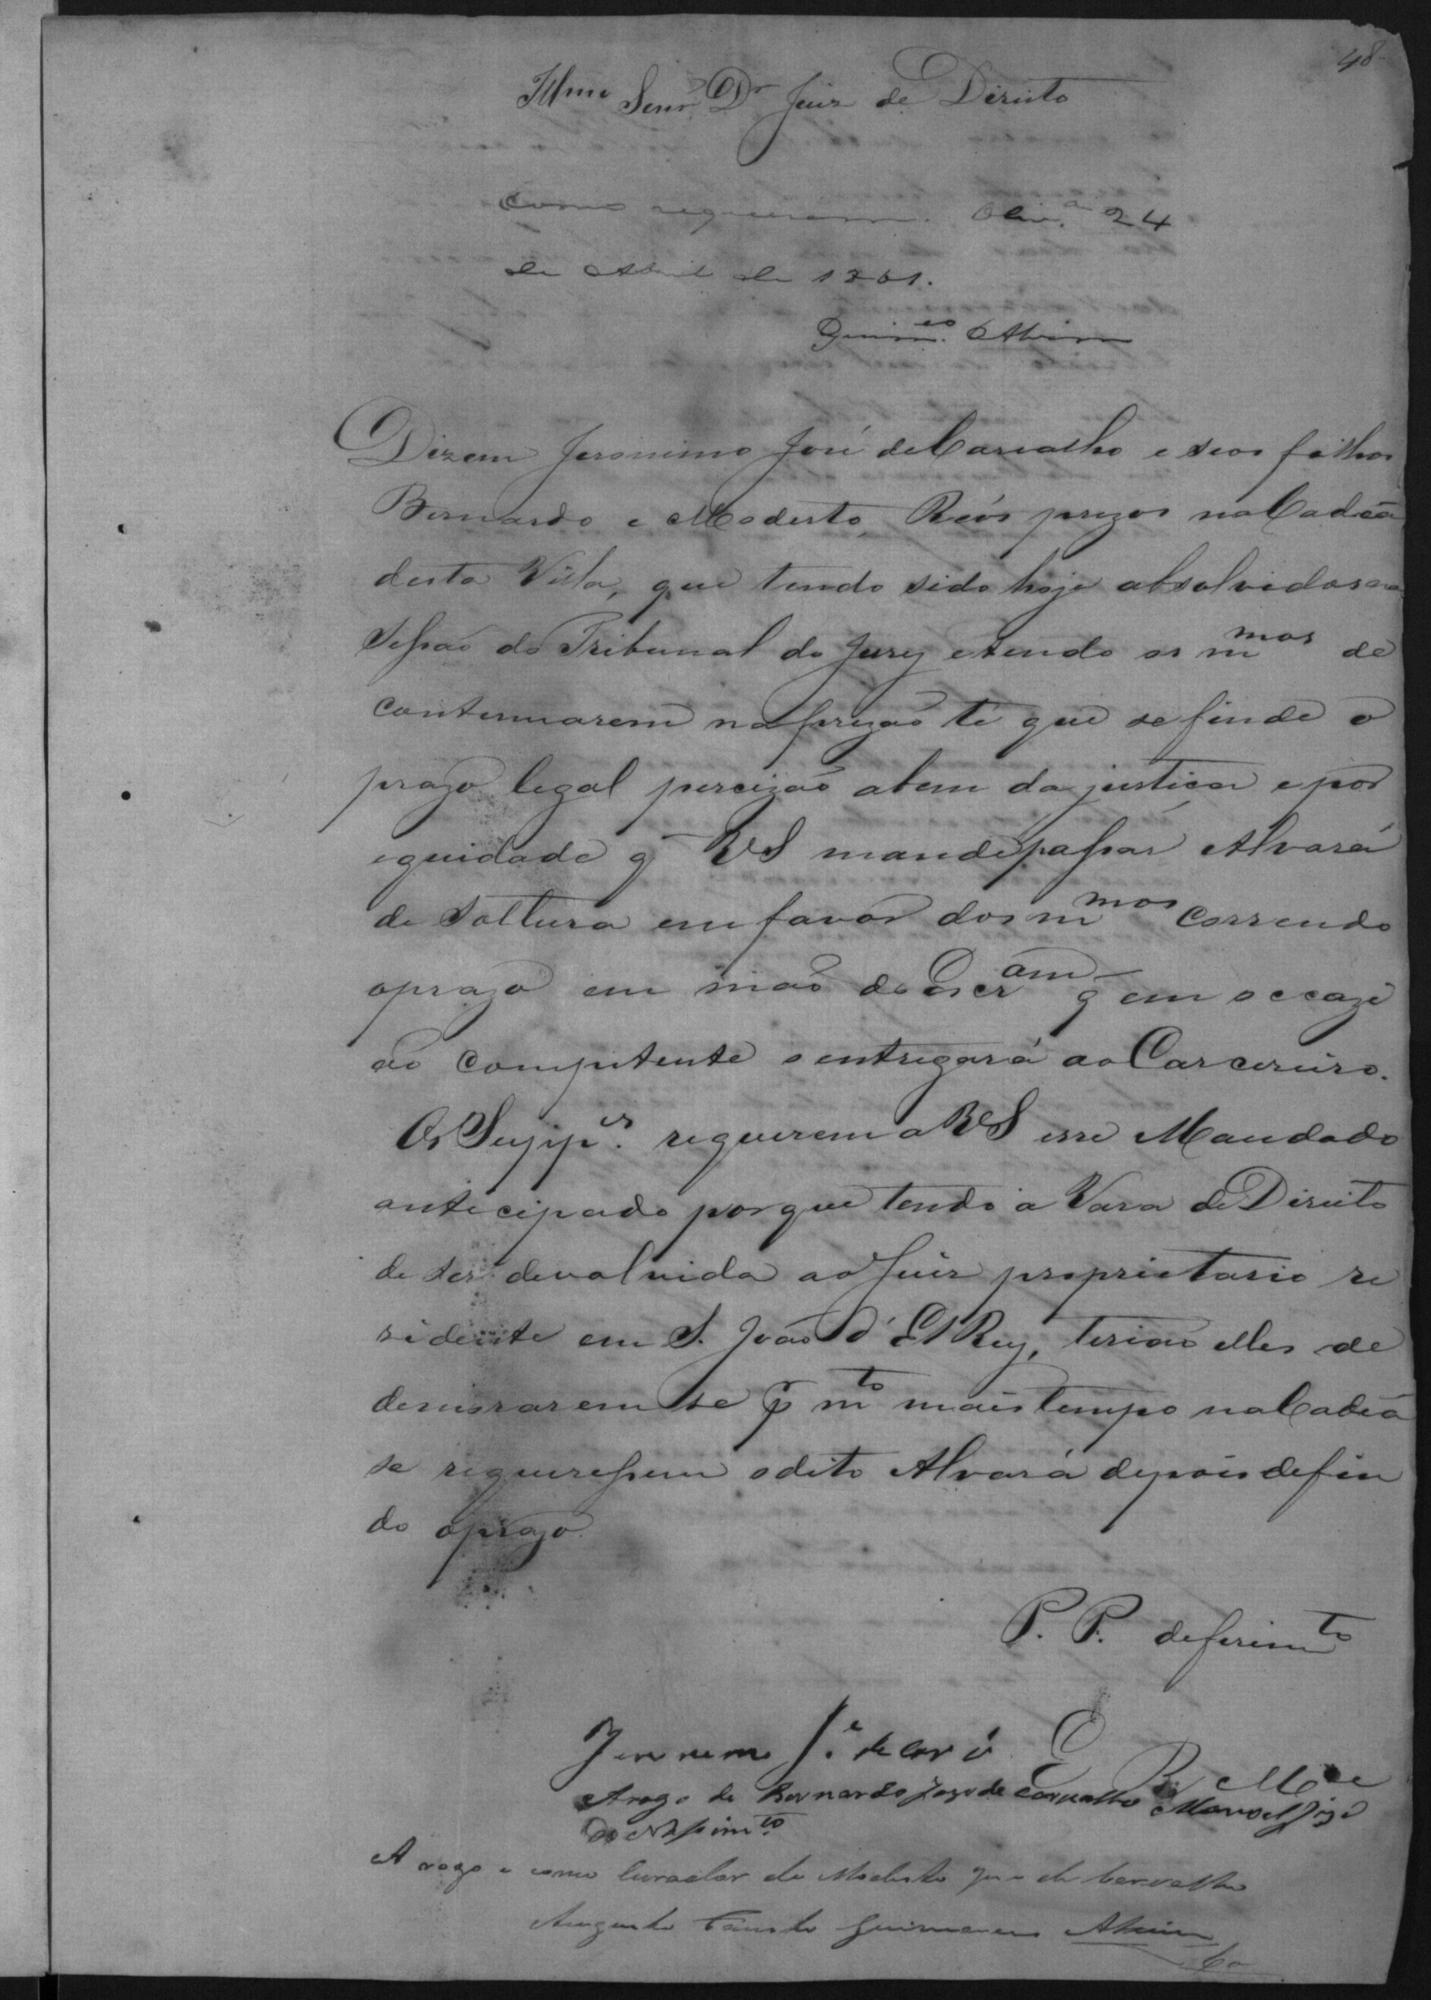 48
Illmo Senr. Dr Juiz de Direito
Como requerem. Oliv.ª 24
de Abril de 1861.
Guim.es Alvim
Dizem Jeronimo José de Carvalho e seos filhos
Bernardo e Modesto, Reós prezos na Cadeã
desta Villa, que tendo sido hoje absolvidos na
Sessão do Tribunal do Jury e tendo os mmos de
continuarem na prizão té que se finde o
prazo legal percizão abem da justiça e por
equidade q VS mande passar Alvará
de Soltura em favor dos mmos correndo
o prazo em mão do Escram q em occazi
ão competente o entregará ao Carcereiro.
Os Supp.es requerem a VS esse Mandado
antecipado porque tendo a Vara de Direito
de ser devolvida ao Juiz proprietario re
sidente em S. João d'El Rey, terião elles de
demorarem se p mto mais tempo na Cadeã
se requeressem o dito Alvará depois de fin
do o prazo.
P. P. deferimto
E R Mce
Jeronimo J.e de Carv.o
Arogo de Bernardo Joze de Carvalho Manoel Joze
do Nassimto
A rogo e como Curador de Modesto Je de Carvalho
Augusto Fausto Guimaraens Alvim